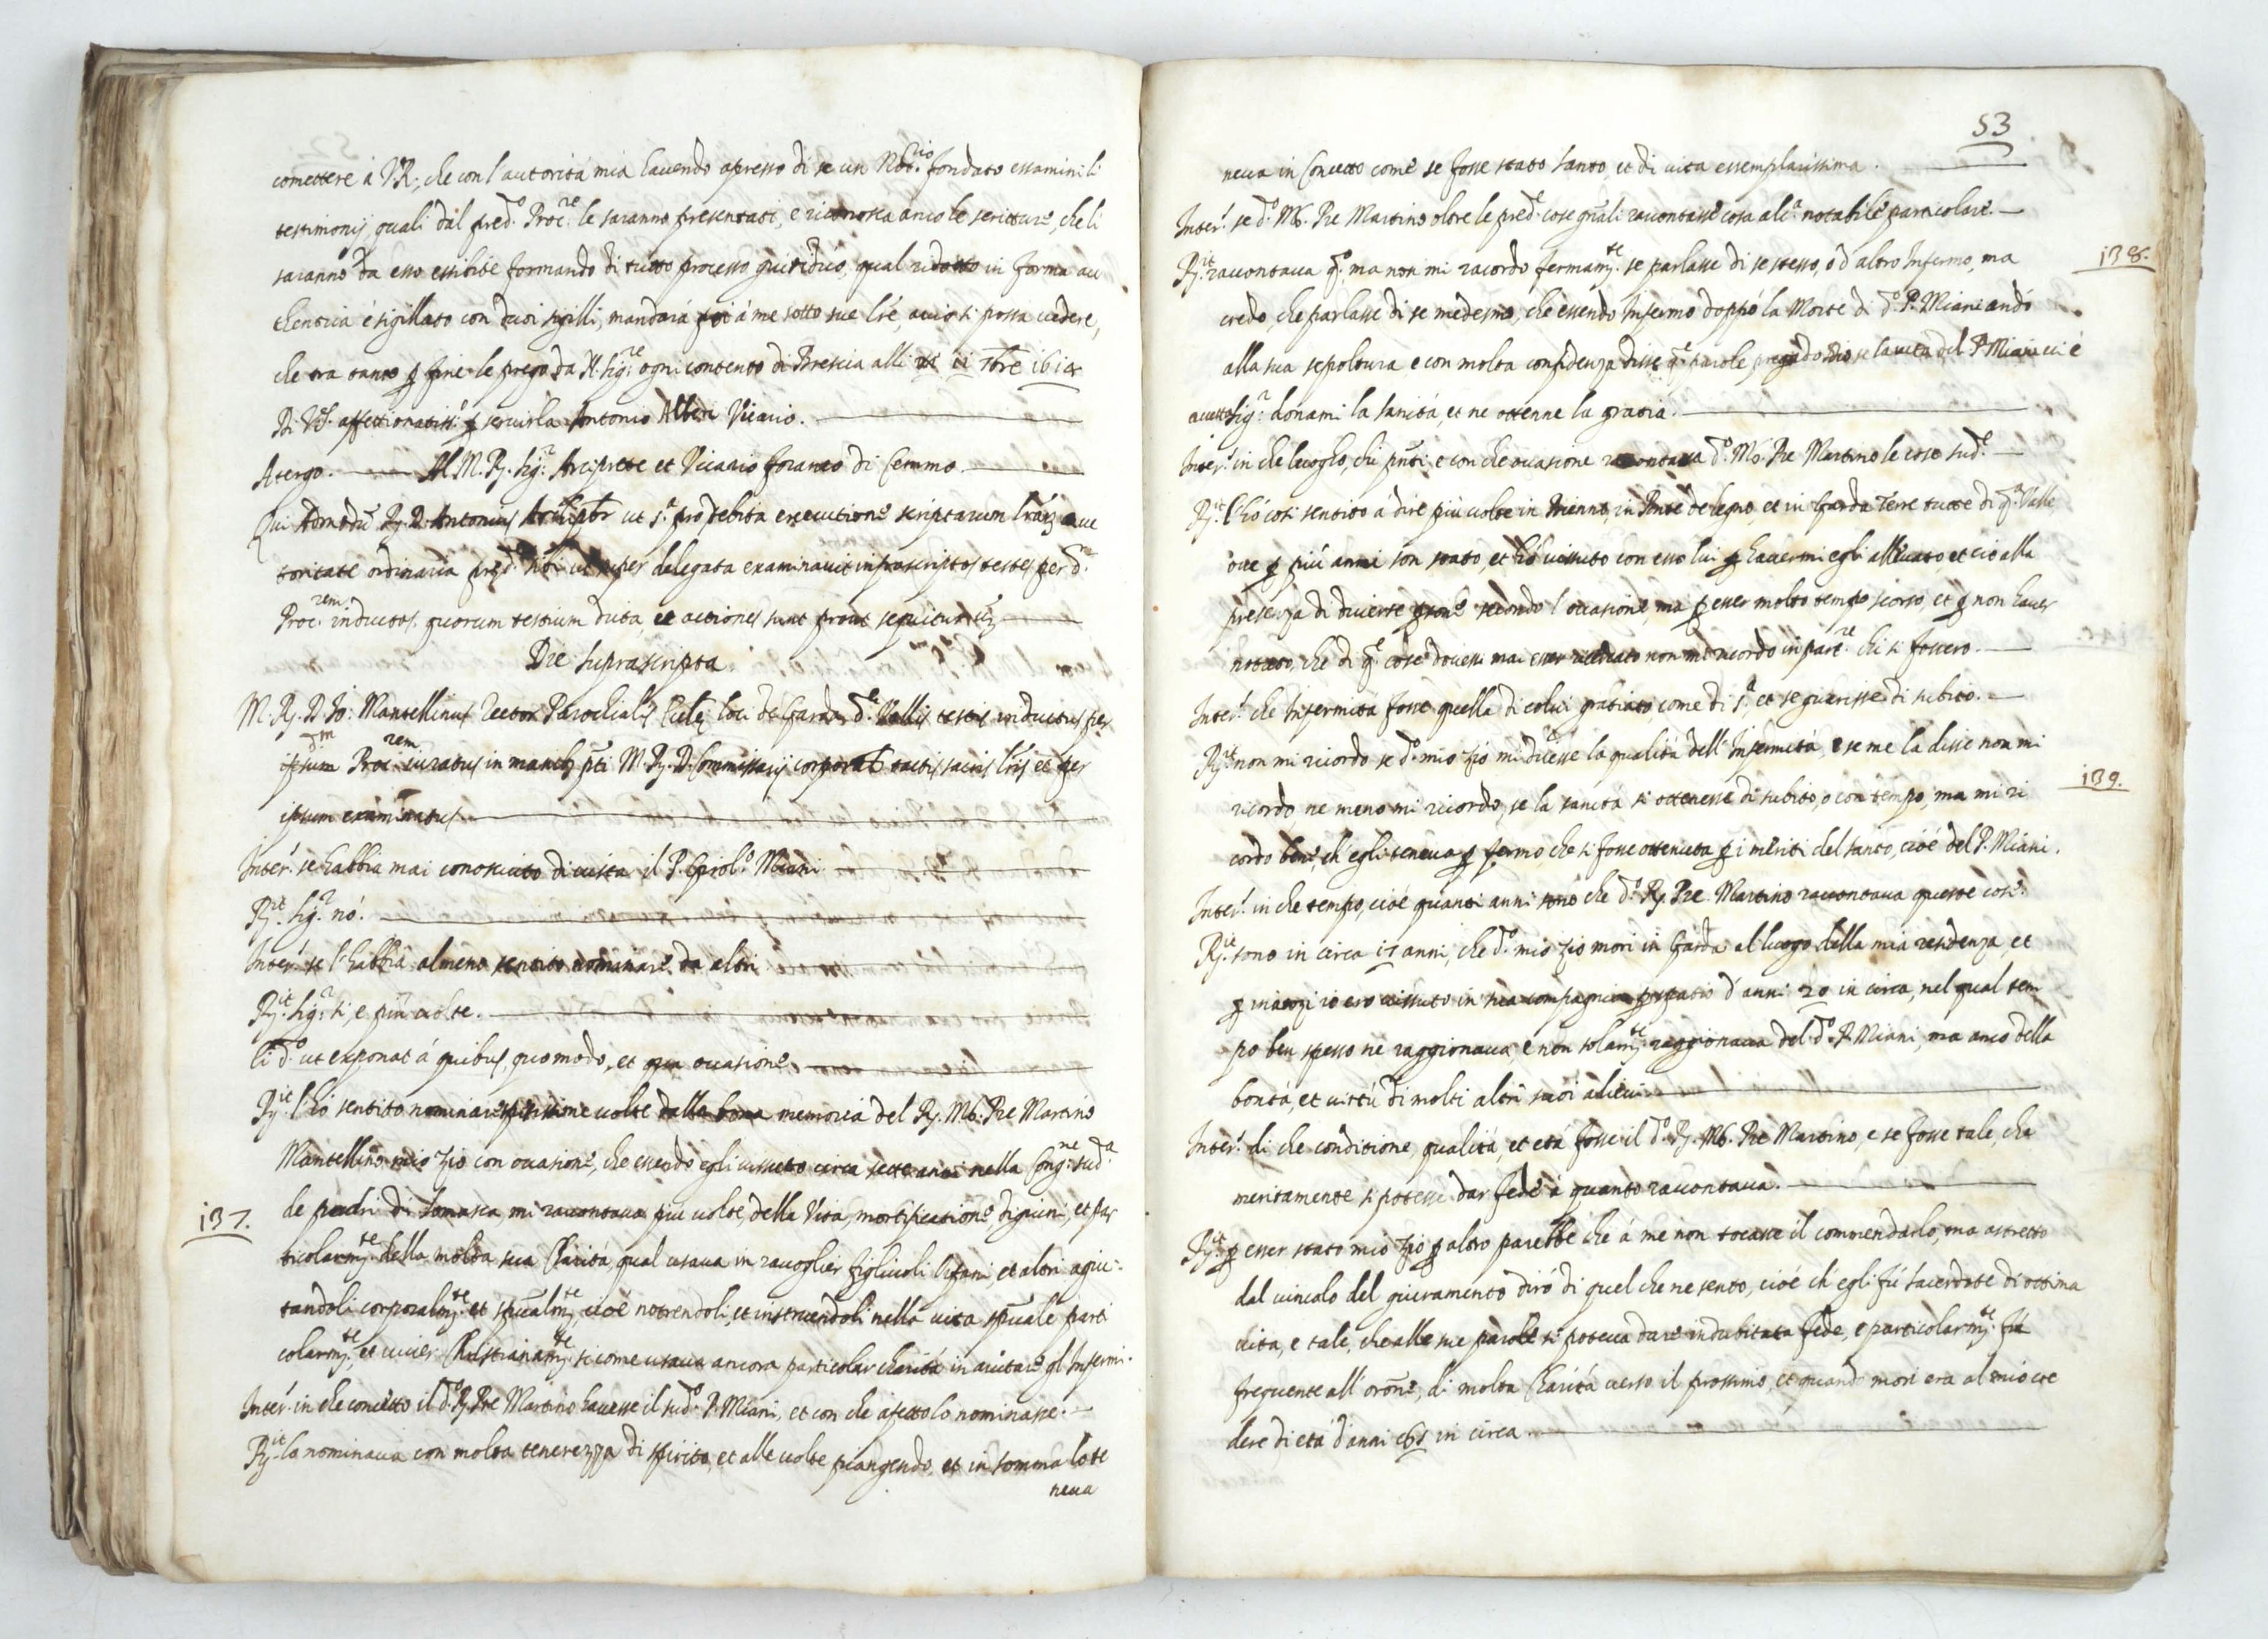 comettere à V.R., che con l'autorità mia havendo apresso di se un Not.rio fondato essamini li
testimonij quali dal pred.o Proc.re le saranno presentati, e riconosca anco le scritture, che li
saranno da esso essibite formando di tutto processo giuridico, qual ridotto in forma au
thentica è sigillato con duoi sigilli, mandarà poi à me sotto sue l're, acciò si possa vedere,
che tra tanto p fine le prego da N. Sig.re ogni contento di Brescia alli ii 7bre 1614
Di V.S. affettionatiss.o p servirla Antonio Alberi Vicario.
Atergo. Al M. R. Sig.r Arciprete et Vicario foraneo di Cemmo.
Qui Admodũ R. D. Antonius Archipbr ut s.a pro debita executione scriptarum l'rarum auc
toritate ordinaria super delegata examinavit infrascriptos testes per d.
Proc.rem inductos, quorum testium dicta, et actiones sunt prout sequitur
Die suprascripta.
M. R. D. Io: Mantellinus Rector Parochialis Eccle loci de Garda d.e Vallis testis inductus per
ipsum Proc.rem iuratus in manib. pti M. R. D. Commissarij corporalr tactis sacris l'ris et per
ipsum examinatus
Inter.o se habbia mai conosciuto di vista il P. Girol.o Miani
R.it Sig.r nó.
Inter. se l'habbia almeno sentito nominare da altri
R.it Sig.r si, e più volte.
Ei d.o ut exponat á quibus, quomodo, et qua occasione.
R.it l'hó sentito nominare spessissime volte dalla bona memoria del R. Mb. Pre Martino
Mantellino mio Zio con occasione, che essendo egli vissuto circa sette anni nella Cong.ne sud.a
137.
de padri di Somasca, mi raccontava piu volte, della Vita, mortificatione digiuni, et par
ticolarm.te della molta sua Charità, qual usava in raccoglier figliuoli Orfani, et altri agiu-
tandoli corporalm.te et spũalm.te, cioé notrendoli, et instruendoli nella vita spũale parti
colarm.te, et viver Christianam.te si come usava ancora particolar charità in aiutare gl'Infermi.
Inter.o in che concetto il d.o R. Pre Martino havesse il sud.o P. Miani, et con che afetto lo nominasse.
R.it lo nominava con molta tenerezza di spirito, et alle volte piangendo, et in somma lo te
neva
53
neva in Concetto come se fosse stato santo, et di vita essemplarissima.
Inter.o se d.o Mb. Pre Martino oltre le pred.e cose gñali raccontasse cosa alc.a notabile particolare.
138.
R.it raccontava q.o ma non mi racordo fermam.te se parlasse di se stesso, ó d'altro Infermo, ma
credo, che parlasse di se medesmo, che essendo Infermo doppó la Morte di d.o P. Miani andó
alla sua sepoltura e con molta confidenza disse q.e parole, pregãdo Dio se la vita del P. Miani vi é
accetta Sig.r donami la sanità, et ne ottenne la gratia.
Inter.o in che luogho, chi pñti, e con che occasione raccontava d.o Mb. Pre Martino le cose sud.e
R.it l'hó cosi sentito á dire più volte in Bienno, in Ponte de legno, et in Garda Terre tutte di q.a Valle
ove p più anni son stato, et hó vissuto con esso lui p havermi egli allevato, et ció alla
presenza di diverse psone secondo l'occasione, ma p esser molto tempo scorso, et p non haver
notato, che di q.e cose dovessi mai esser ricercato non mi ricordo in part.re chi si fossero.
Inter.o che Infermità fosse quella di colui gratiato come di s.a, et se guarisse di subito.
R.it non mi ricordo se d.o mio Zio mi dicesse la qualità dell'Infermità, e se me la disse non mi
139.
ricordo ne meno mi ricordo, se la sanità si ottenesse di subito, o con tempo, ma mi ri
cordo bene, ch'egli teneva p fermo, che si fosse ottenuta p i meriti del santo, cioé del P. Miani.
Inter.o in che tempo, cioé quanti anni sono che d.o R. Pre Martino raccontava queste cose.
R.it sono in circa 17 anni, che d.o mio Zio mori in Garda al luogo della mia residenza, et
p inanzi io ero vissuto in sua compagnia p spatio d'anni 20 in circa, nel qual tem
po ben spesso ne raggionava, e non solam.te raggionava del d.o P. Miani, ma anco della
bontà, et virtù di molti altri suoi alievi
Inter.o di che conditione, qualità, et età fosse il d.o R. Mb. Pre Martino, e se fosse tale, che
meritamente si potesse dar fede á quanto raccontava.
R.it p esser stato mio Zio p altro parebbe che á me non tocasse il commendarlo, ma astretto
dal vincolo del giuramento diró di quel che ne sento, cioé ch'egli fú sacerdote di ottima
vita, e tale, che alle sue parole si poteva dare indubitata fede, e particolarm.te fu
frequente all'orõne, di molta Charità verso il prossimo, et quando mori era al mio cre
dere di età d'anni 65 in circa